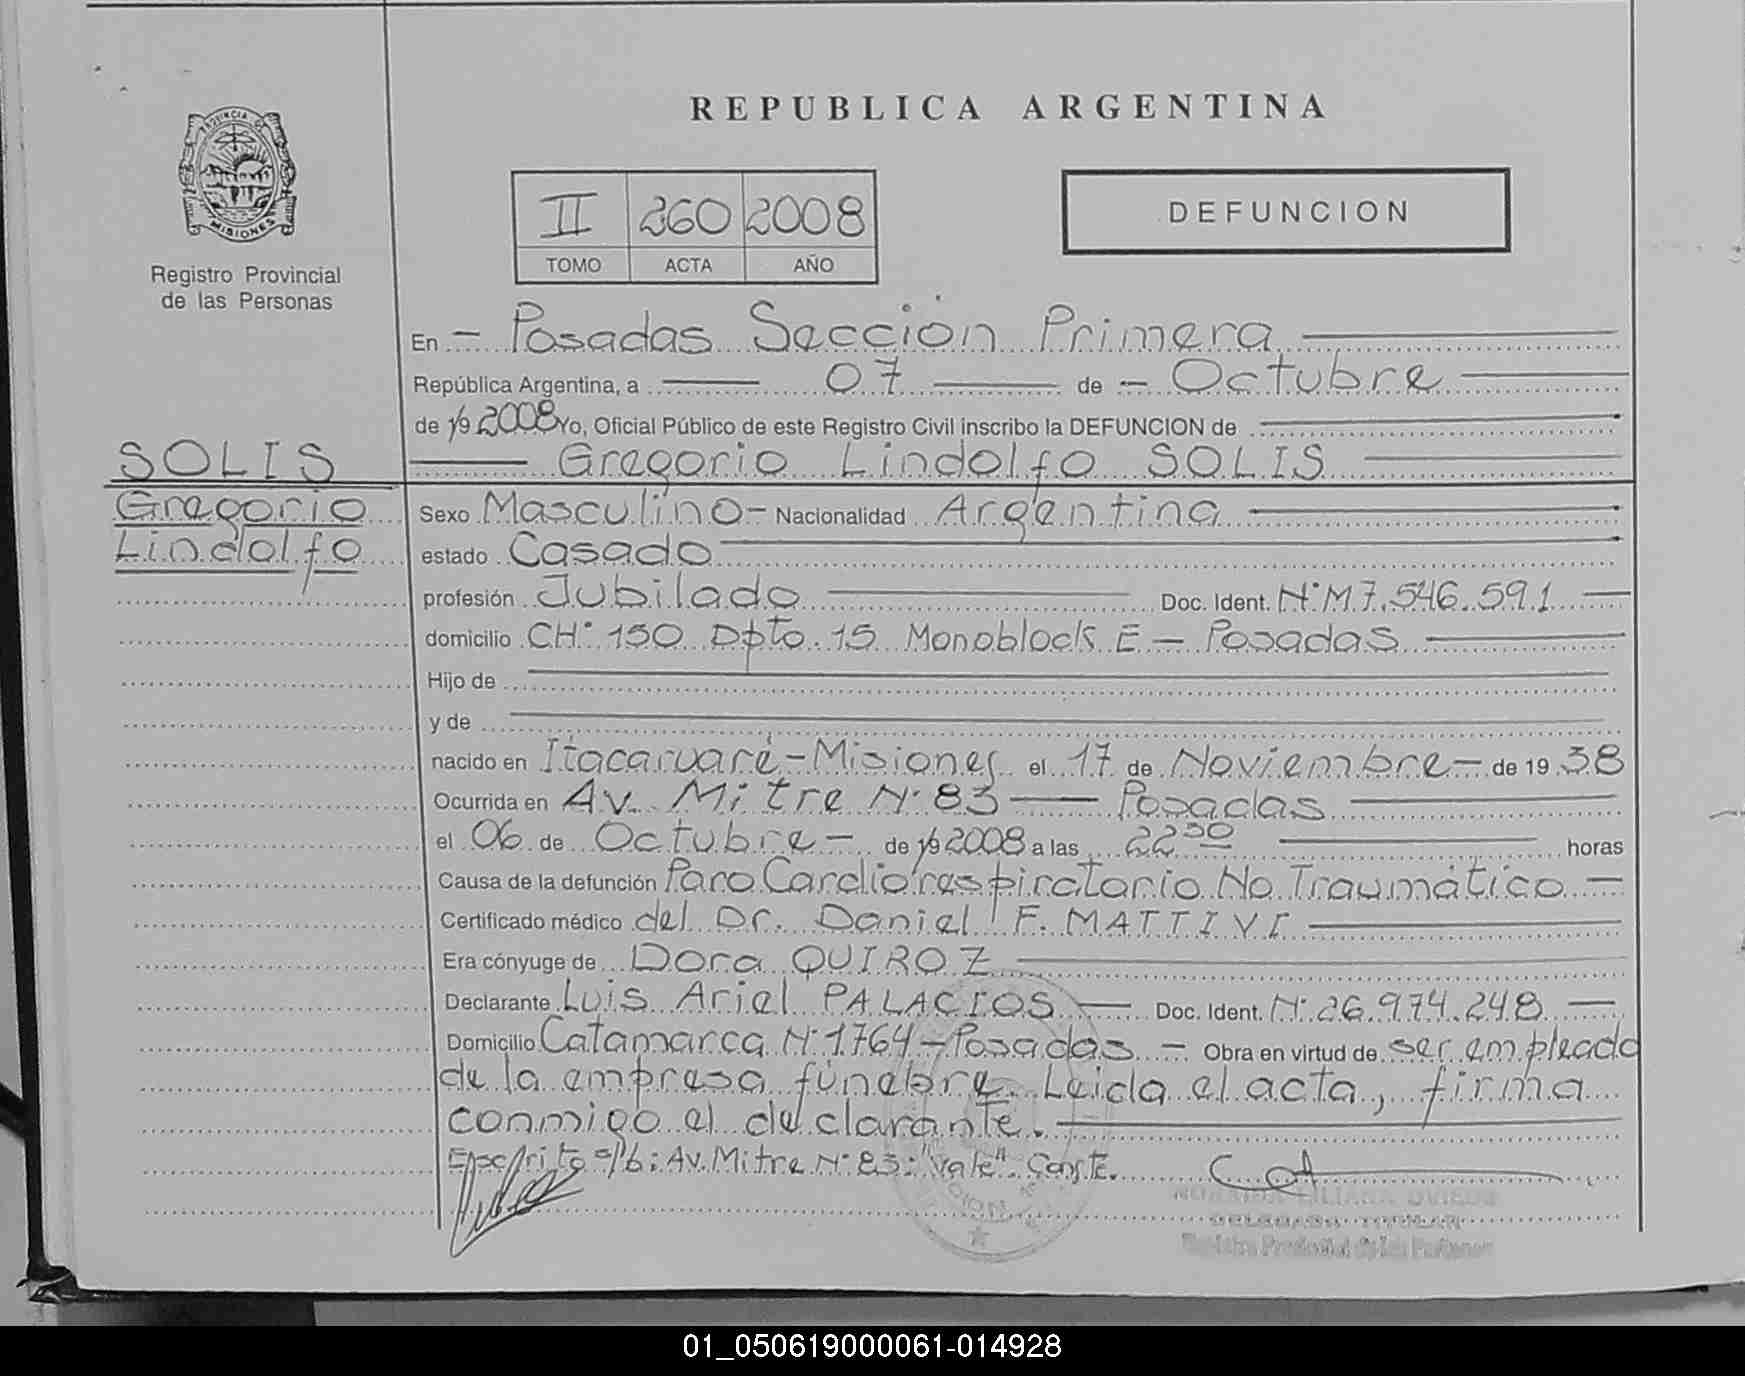 REPUBLICA ARGENTINA
PROVINCIA DE
MISIONES
Registro Provincial
de las Personas
II 260 2008
TOMO ACTA AÑO
DEFUNCION
En - Posadas Sección Primera
República Argentina, a 07 de - Octubre
de 19 2008 Yo, Oficial Público de este Registro Civil inscribo la DEFUNCION de
Gregorio Lindolfo SOLIS
SOLIS
Gregorio
Lindolfo
Sexo Masculino - Nacionalidad Argentina
estado Casado
profesión Jubilado Doc. Ident. N° M7.546.591
domicilio CH° 150 Dpto. 15 Monoblock E - Posadas
Hijo de
y de
nacido en Itacaruaré - Misiones el 17 de Noviembre - de 19 38
Ocurrida en Av. Mitre N° 83 - Posadas
el 06 de Octubre - de 19 2008 a las 22 30 horas
Causa de la defunción Paro Cardiorespiratorio No Traumático -
Certificado médico del Dr. Daniel F. MATTIVI
Era cónyuge de Dora QUIROZ
Declarante Luis Ariel PALACIOS - Doc. Ident. N° 26.974.248 -
Domicilio Catamarca N° 1764 - Posadas - Obra en virtud de ser empleado
de la empresa fúnebre. Leida el acta, firma
conmigo el declarante.
s/b: Av. Mitre N° 83: "Vale". Conste.
Registro Provincial de las Personas
01_050619000061-014928